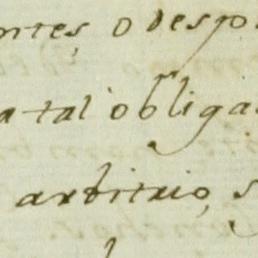 ntes, o despo
a tal obliga
arbitrio, s